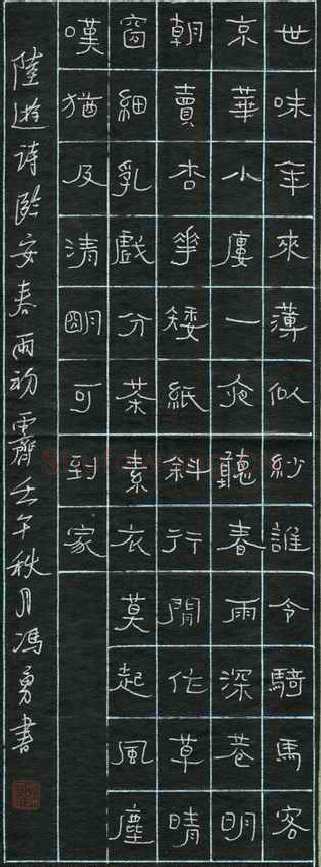 世味年來薄似紗誰令騎馬客
京華小廔一夜聽春雨深巷明
朝賣杏花矮紙斜行閒作草晴
窗細乳戲分茶素衣莫起風塵
嘆猶及清明可到家
陸遊詩臨安春雨初霽壬午秋月馮勇書